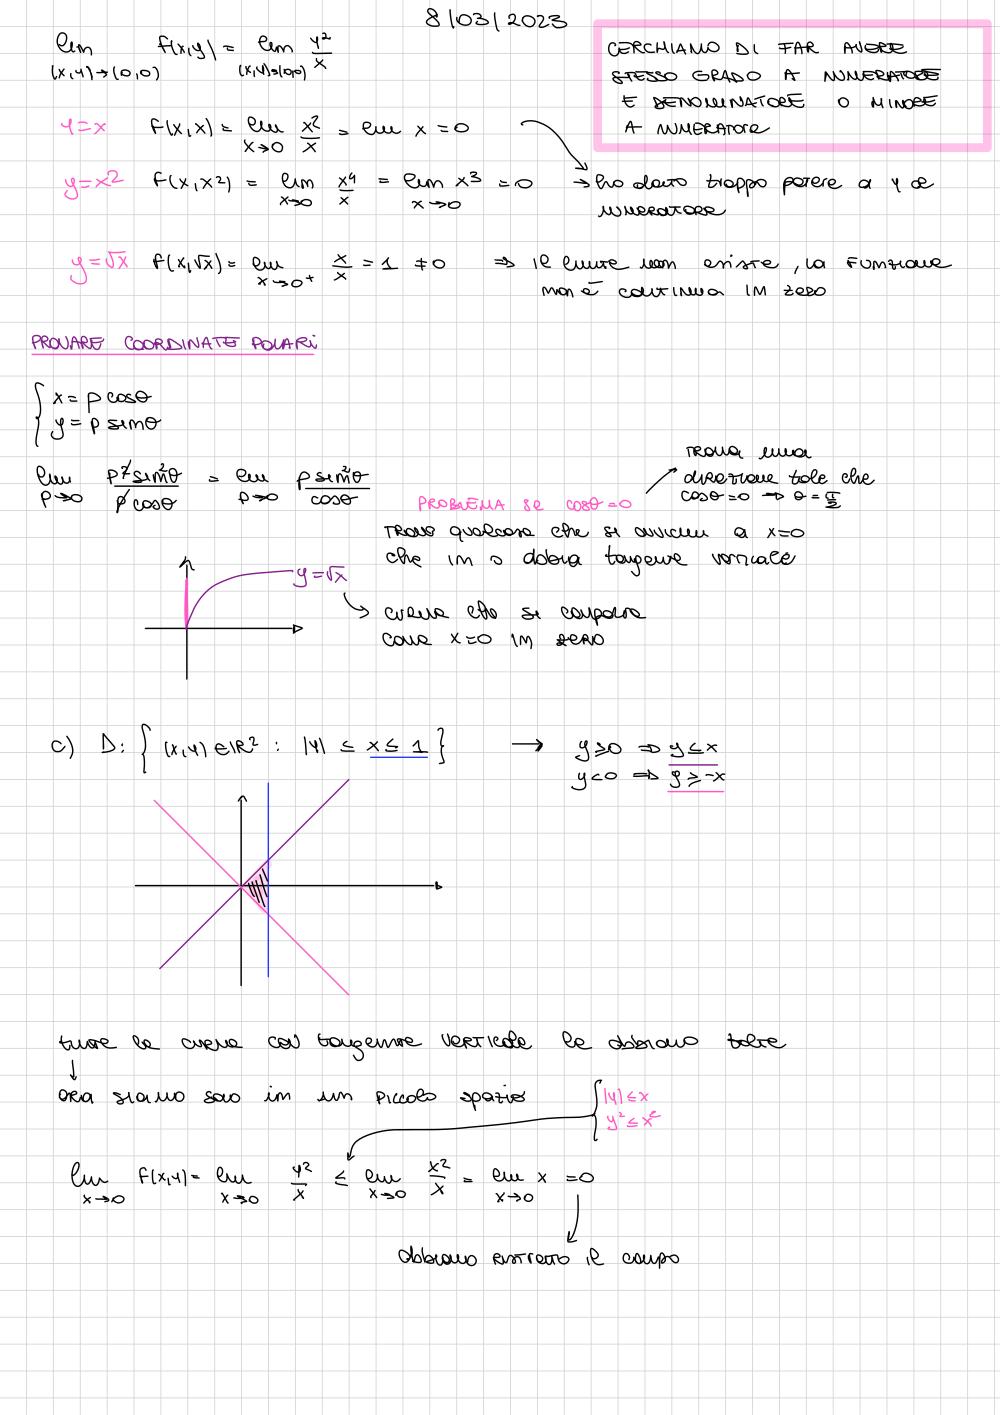 8/03/2023
lim (x,y)→(0,0) f(x,y) = lim (x,y)→(0,0) y²/x
CERCHIAMO DI FAR AVERE
STESSO GRADO A NUMERATORE
E DENOMINATORE O MINORE
A NUMERATORE
y=x f(x,x) = lim x→0 x²/x = lim x = 0
y=x² f(x,x²) = lim x→0 x⁴/x = lim x→0 x³ = 0 → ho dato troppo potere a y al
NUMERATORE
y=√x f(x,√x) = lim x→0⁺ x/x = 1 ≠ 0 ⇒ il limite non esiste, la FUNZIONE
non è continua in zero
PROVARE COORDINATE POLARI
{ x = ρ cosθ
y = ρ sinθ
lim ρ→0 ρ² sin²θ / ρ cosθ = lim ρ→0 ρ sin²θ / cosθ
PROBLEMA SE cosθ = 0
TROVA una
direzione tale che
cosθ = 0 → θ = π/2
TROVO qualcosa che si avvicini a x=0
che in 0 abbia tangente verticale
y=√x
curva che si comporta
come x=0 in zero
c) D: { (x,y) ∈ ℝ² : |y| ≤ x ≤ 1 } → y≥0 ⇒ y≤x
y<0 ⇒ y≥-x
tutte le curve con tangente verticale le abbiamo tolte
↓
ora siamo solo in un piccolo spazio
{ |y| ≤ x
y² ≤ x²
lim x→0 f(x,y) = lim x→0 y²/x ≤ lim x→0 x²/x = lim x→0 x = 0
abbiamo ristretto il campo